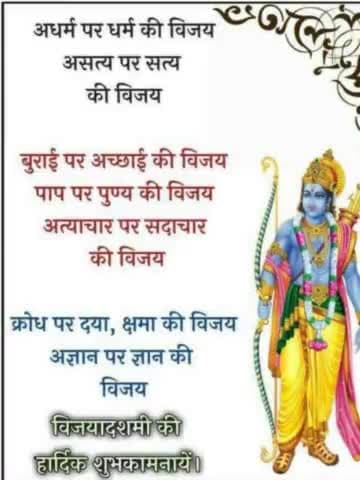 अधर्म पर धर्म की विजय
असत्य पर सत्य
की विजय
बुराई पर अच्छाई की विजय
पाप पर पुण्य की विजय
अत्याचार पर सदाचार
की विजय
क्रोध पर दया, क्षमा की विजय
अज्ञान पर ज्ञान की
विजय
विजयादशमी की
हार्दिक शुभकामनायें।